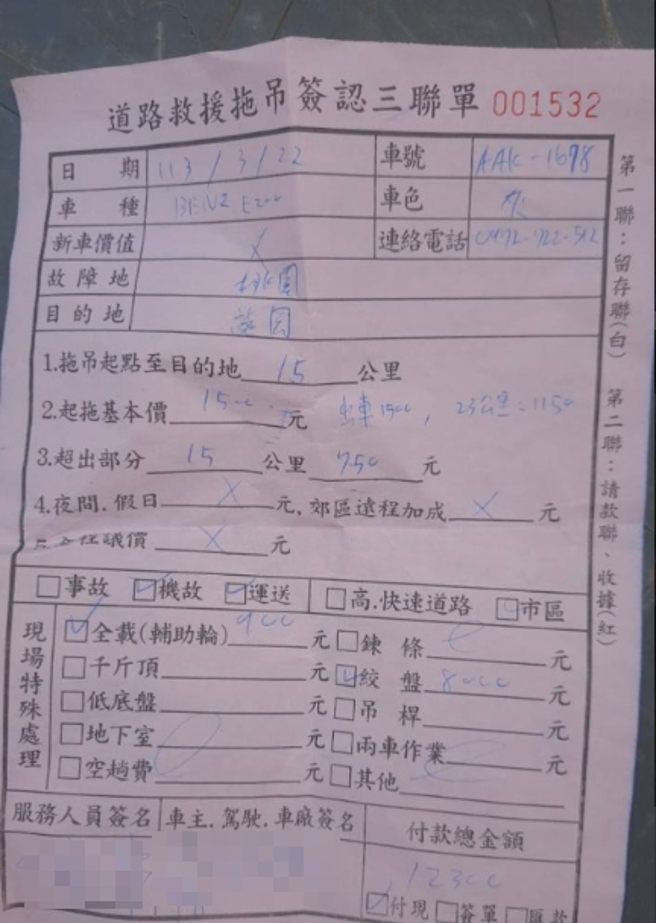 道路救援拖吊簽認三聯單 001532
日期 113/3/22 車號 AAK-1698
車種 BENZ E200 車色 灰
新車價值 X 連絡電話
故障地 桃園
目的地 園
1.拖吊起點至目的地 15 公里
2.起拖基本價 1500 元 1500, 23公里=1150
3.超出部分 15 公里 750 元
4.夜間.假日 X 元,郊區遠程加成 X 元
議價 X 元
事故 機故 運送 高.快速道路 市區
現場特殊處理
全載(輔助輪) 900 元 鍊條 元
千斤頂 元 絞盤 8000 元
低底盤 元 吊桿 元
地下室 元 兩車作業 元
空趟費 元 其他
服務人員簽名 車主.駕駛.車廠簽名 付款總金額
12300
付現 簽單 匯款
第一聯:留存聯(白) 第二聯:請款聯、收據(紅)